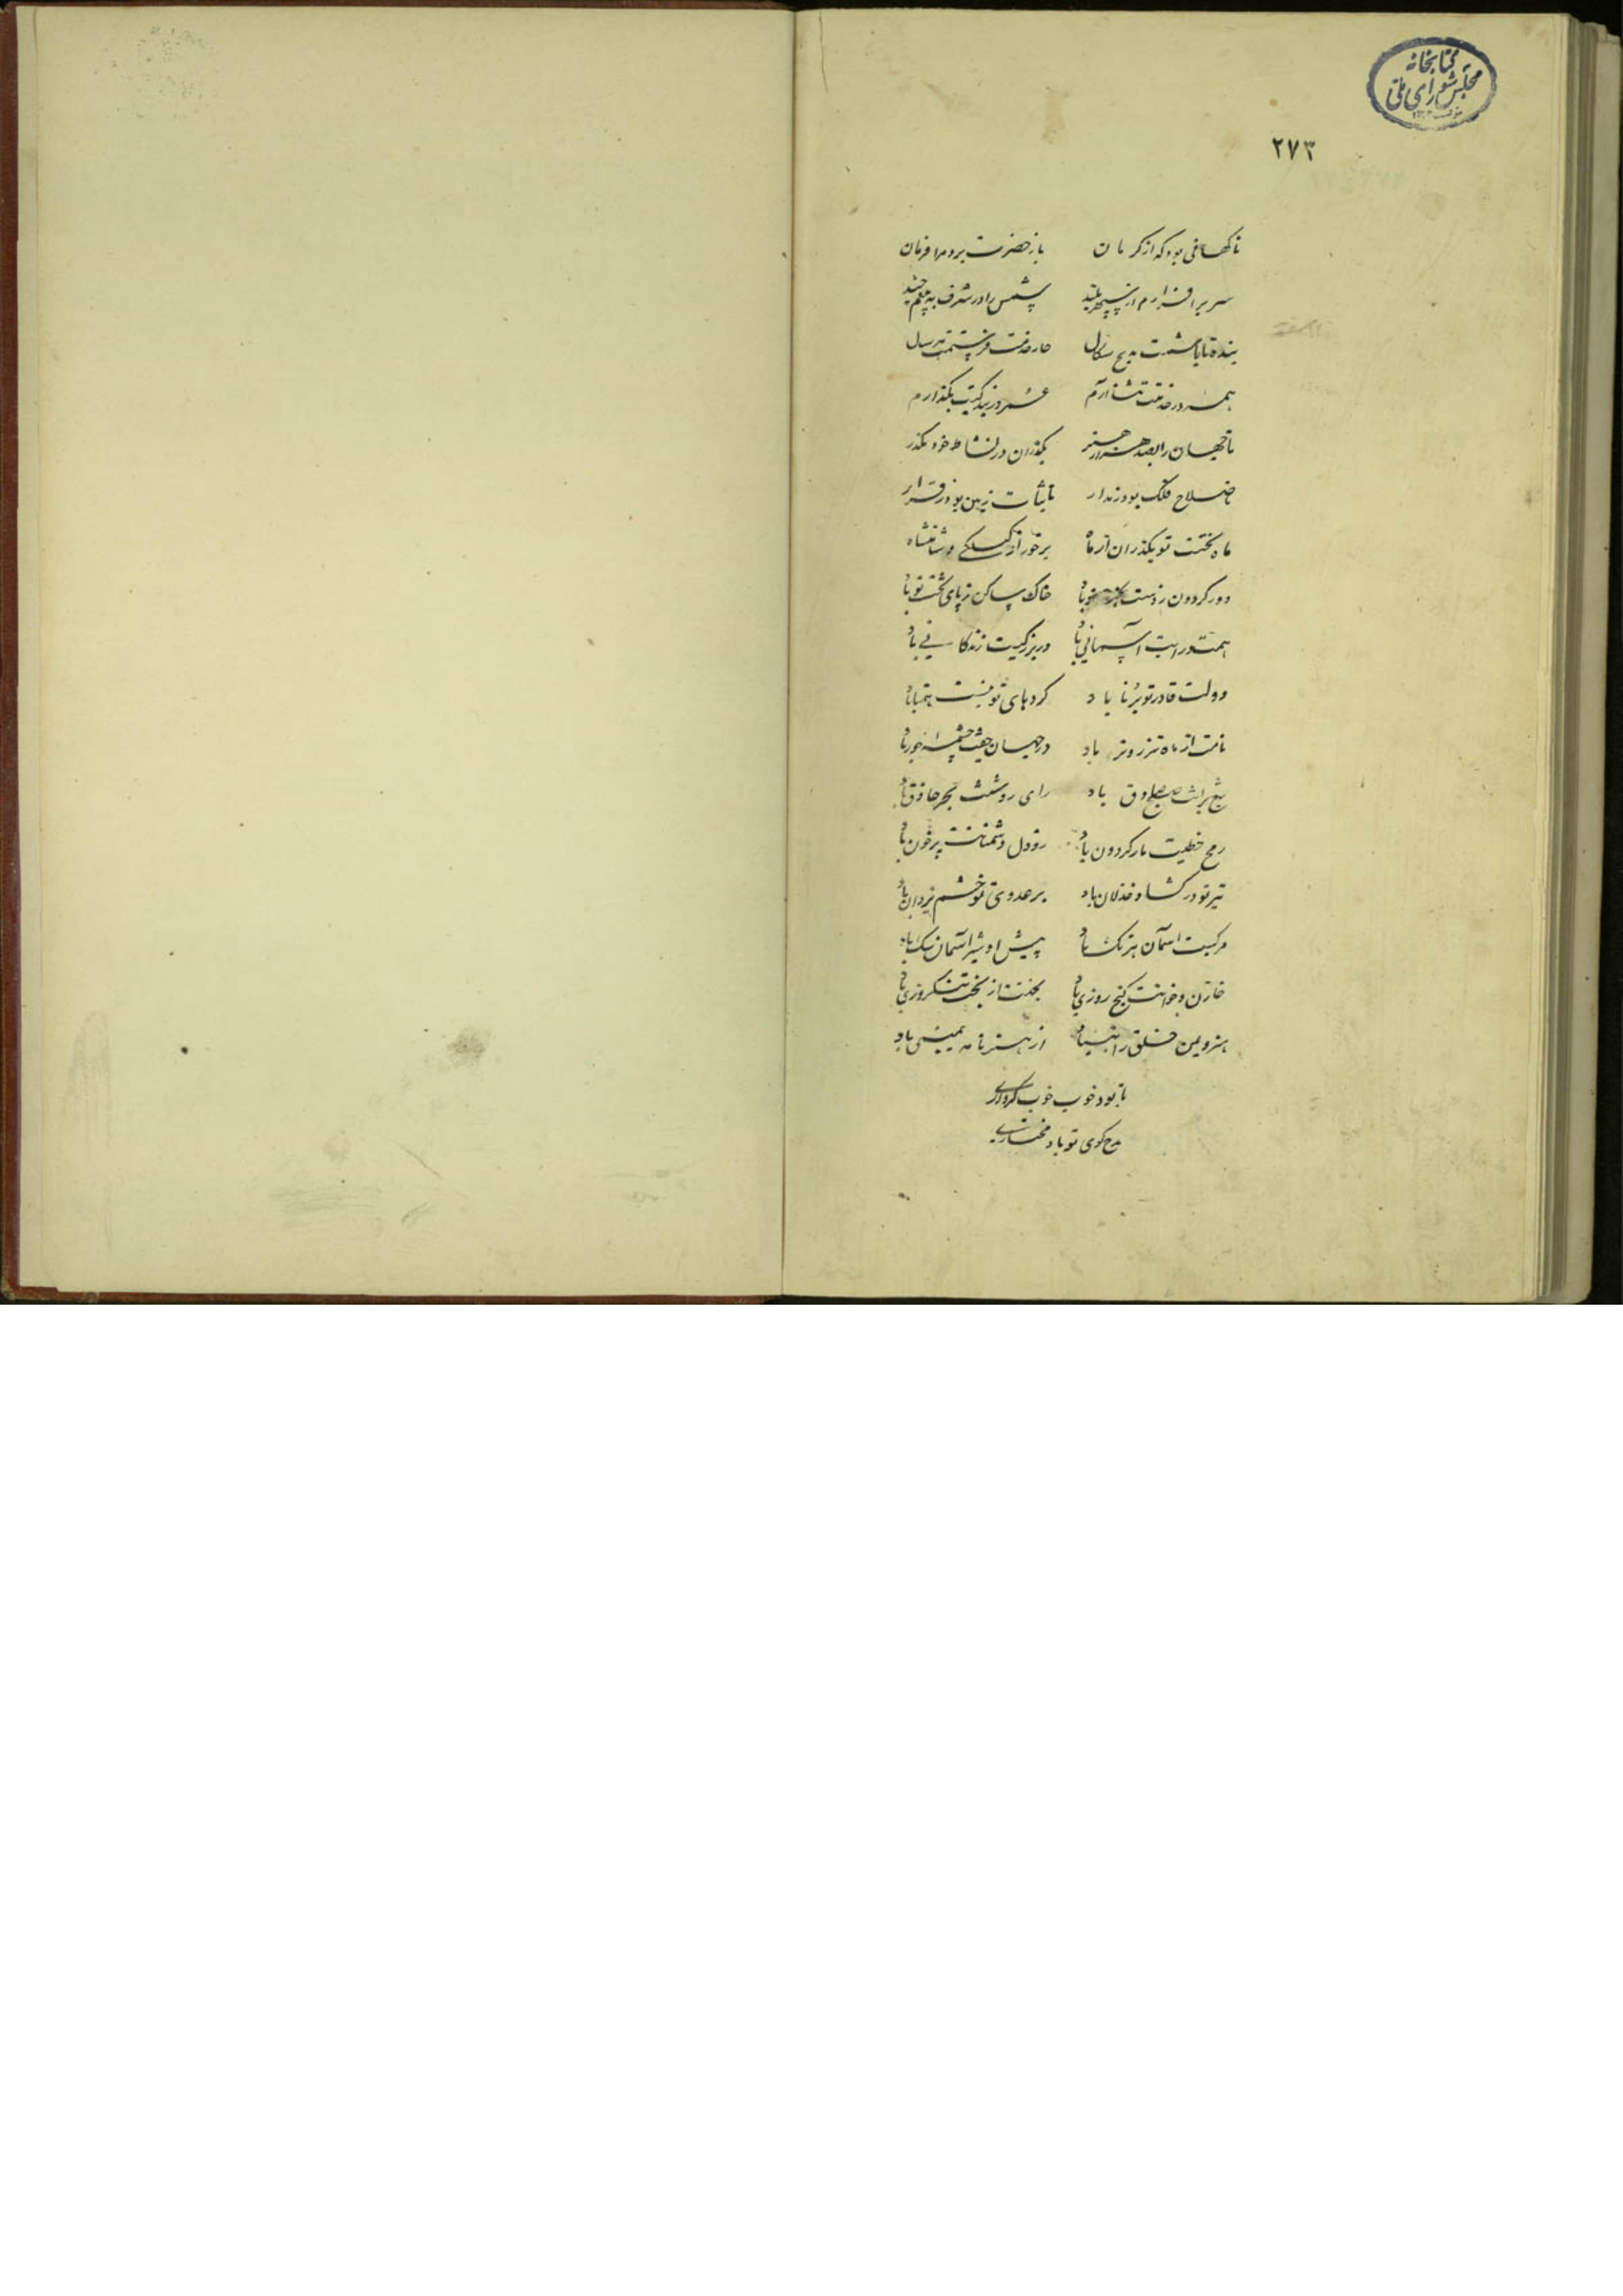 کتابخانه
مجلس شورای ملی
۲۷۳
ناگهانی بود که از کرمان باز حضرت برد مرا فرمان
سر برافرازم از سپهر بلند شمس را در شرف به چشم
بنده تا باشمت مدیح سکال
همه در خدمتت نشاز آرم عمر در بندگیت بگذارم
تا جهان را بصد هزار هنر بگذران در نشاط خود مگذر
صلاح فلک بود زمدار تا ثبات زمین بود ز قرار
ماه بختت تو بگذران از ماه برخور از شاهنشاه
دور کردون ز دست باد خاک ساکن ز پای تخت تو باد
همتت و رایت آسمانی باد در بزرگیت زندگانی باد
دولت قادر تو برنا باد کردهای تو همتا باد
نامت از ماه باد در جهان جفت چشمه خور باد
صبح صادق باد رای روشنت بحر حاذق باد
رمح خطیت مار کردون باد رود دل دشمنانت پرخون باد
تیر تو در کشاد خذلان باد بر عدوی تو خشم یزدان باد
مرکبت آسمان هر تک باد پیش او شیر آسمان سک باد
خازن و خوانت کنج روزی باد بختت از بخت باد
هنر و یمن خلق را باد از هنر نامه یمینی باد
تا بود خوب خوب کرداری
مدح کوی تو باد مختاری